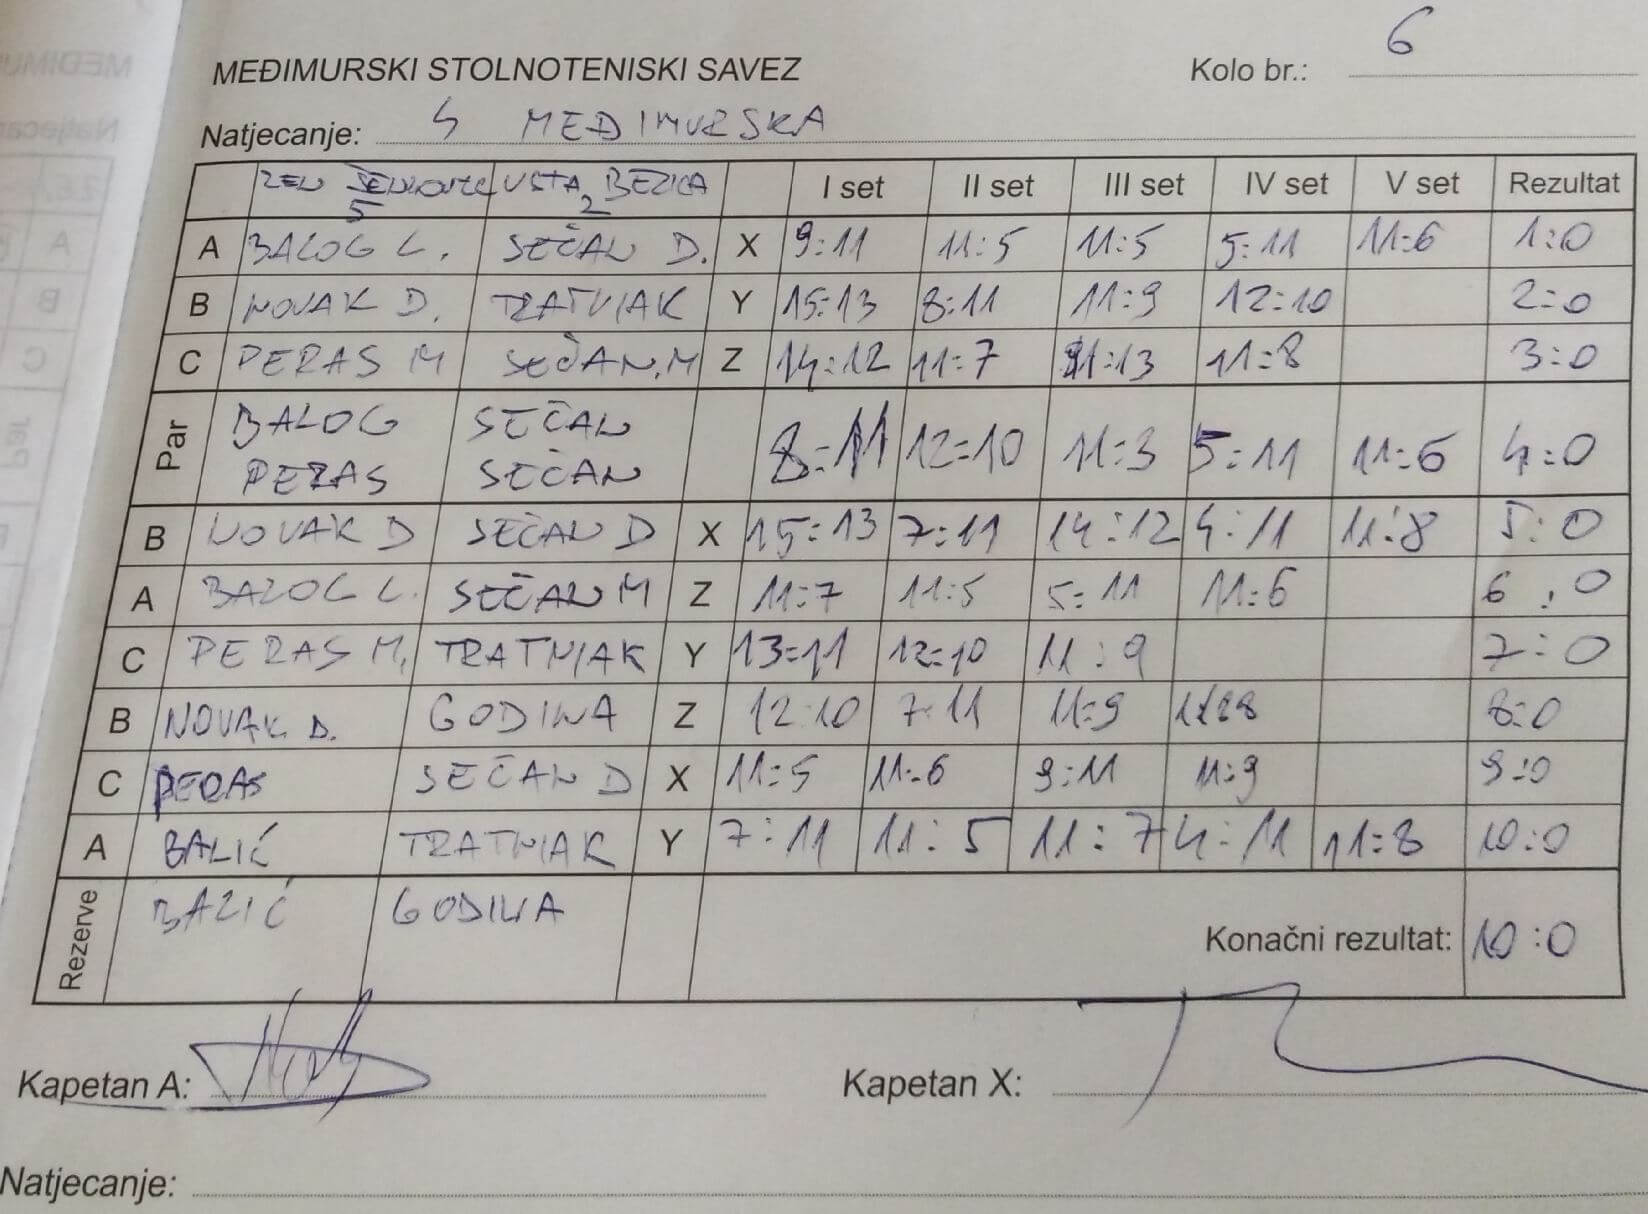 MEĐIMURSKI STOLNOTENISKI SAVEZ Kolo br.: 6
Natjecanje: 4 MEĐIMURSKA
5 USTA BEZICA 2 I set II set III set IV set V set Rezultat
A BALOG L. SEČAN D. X 9:11 11:5 11:5 5:11 11:6 1:0
B NOVAK D. TRATNJAK Y 15:13 8:11 11:9 12:10 2:0
C PERAS M SEČAN.M Z 14:12 11:7 11:13 11:8 3:0
Par BALOG SEČAN
PERAS SEČAN 8:11 12:10 11:3 5:11 11:6 4:0
B NOVAK D SEČAN D X 15:13 7:11 14:12 4:11 11:8 5:0
A BALOG L. SEČAN M Z 11:7 11:5 5:11 11:6 6:0
C PERAS M. TRATNJAK Y 13:11 12:10 11:9 7:0
B NOVAK D. GODINA Z 12:10 7:11 11:9 8:0
C PERAS SEČAN D X 11:5 11:6 9:11 11:9 9:0
A BALIĆ TRATNJAK Y 7:11 11:5 11:7 4:11 11:8 10:0
Rezerve BALIĆ GODINA
Konačni rezultat: 10:0
Kapetan A: Kapetan X:
Natjecanje: